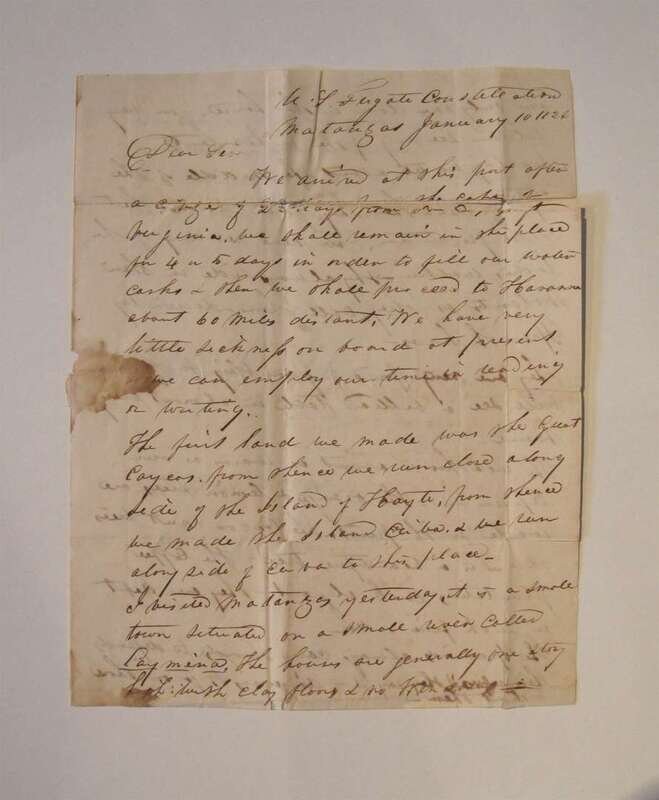 U. S Frigate Constellation
Matanzas January 10 182
Dear Sir
We arived at this port after
a of 23 days from the capes of
Virginia. we shall remain in the place
for 4 or 5 days in order to fill our water
casks & then we shall proceed to Havanna
about 60 miles distant. We have very
little sickness on board at present
we can employ our time in reading
or writing.
The first land we made was the Great
Caycos. from thence we run close along
side of the Island of Hayti, from thence
we made the Island Cuba. & we run
along side of Cuba to this place—
I visited Matanzas yesterday, it is a small
town situated on a small river called
The houses are generally one story
high: with clay floors & no